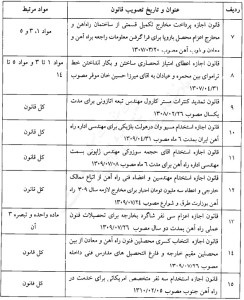 ردیف
عنوان و تاریخ تصویب قانون
مواد مرتبط
۷
قانون اجازه پرداخت مخارج تکمیل قسمتی از ساختمان راه‌آهن و
مخارج اعزام محصل باروپا برای فرا گرفتن معلومات راجعه براه آهن و
معادن و ذوب آهن مصوب ۱۳۰۷/۰۳/۲۰
مواد ۱، ۳ و ۵
۸
قانون اجازه اعطای امتیاز انحصاری ساختن و بکار انداختن خط
تراموای بین محمره و عبادان به آقای میرزا حسین خان موقر مصوب
۱۳۰۷/۰۴/۳۱
مواد ۱ تا ۳ و ۵ تا
۱۴
۹
قانون تمدید کنترات مستر کارول مهندس تبعه اتازونی برای مدت
یکسال مصوب ۱۳۰۸/۰۲/۲۶
کل قانون
۱۰
قانون اجازه استخدام مسیو وان درهولت بلژیکی برای مهندسی اداره راه
آهن ایران بمدت ۶ ماه مصوب ۱۳۰۹/۰۴/۳۱
کل قانون
۱۱
قانون اجازه استخدام آقای حجمه سوزوکی مهندس ژاپونی بسمت
مهندسی اداره راه آهن برای مدت ۶ ماه مصوب ۱۳۰۹/۰۷/۰۸
کل قانون
۱۲
قانون اجازه استخدام مهندسین و اعضاء فنی راه آهن از اتباع ممالک
خارجی و اعطاء سه ملیون تومان اعتبار برای مخارج لازمه سال ۳۰۹ راه
آهن بوزارت طرق و شوارع مصوب ۱۳۰۹/۰۷/۲۴
کل قانون
۱۳
قانون اجازه اعزام سی نفر شاگرد بخارجه برای تحصیلات فنون
عملی راه آهن بمدت دو سال مصوب ۱۳۰۹/۰۷/۲۴
ماده واحده و تبصره ۳
آن
۱۴
قانون اجازه انتخاب کسری محصلین فنون راه آهن و معادن از بین
محصلین مقیم خارجه و فارغ التحصیل های مدارس فنی داخله
مصوب ۱۳۰۹/۰۷/۲۶
کل قانون
۱۵
قانون اجازه استخدام سه نفر متخصص امریکائی برای خدمت در
راه آهن جنوب مصوب ۱۳۱۰/۰۲/۰۵
کل قانون